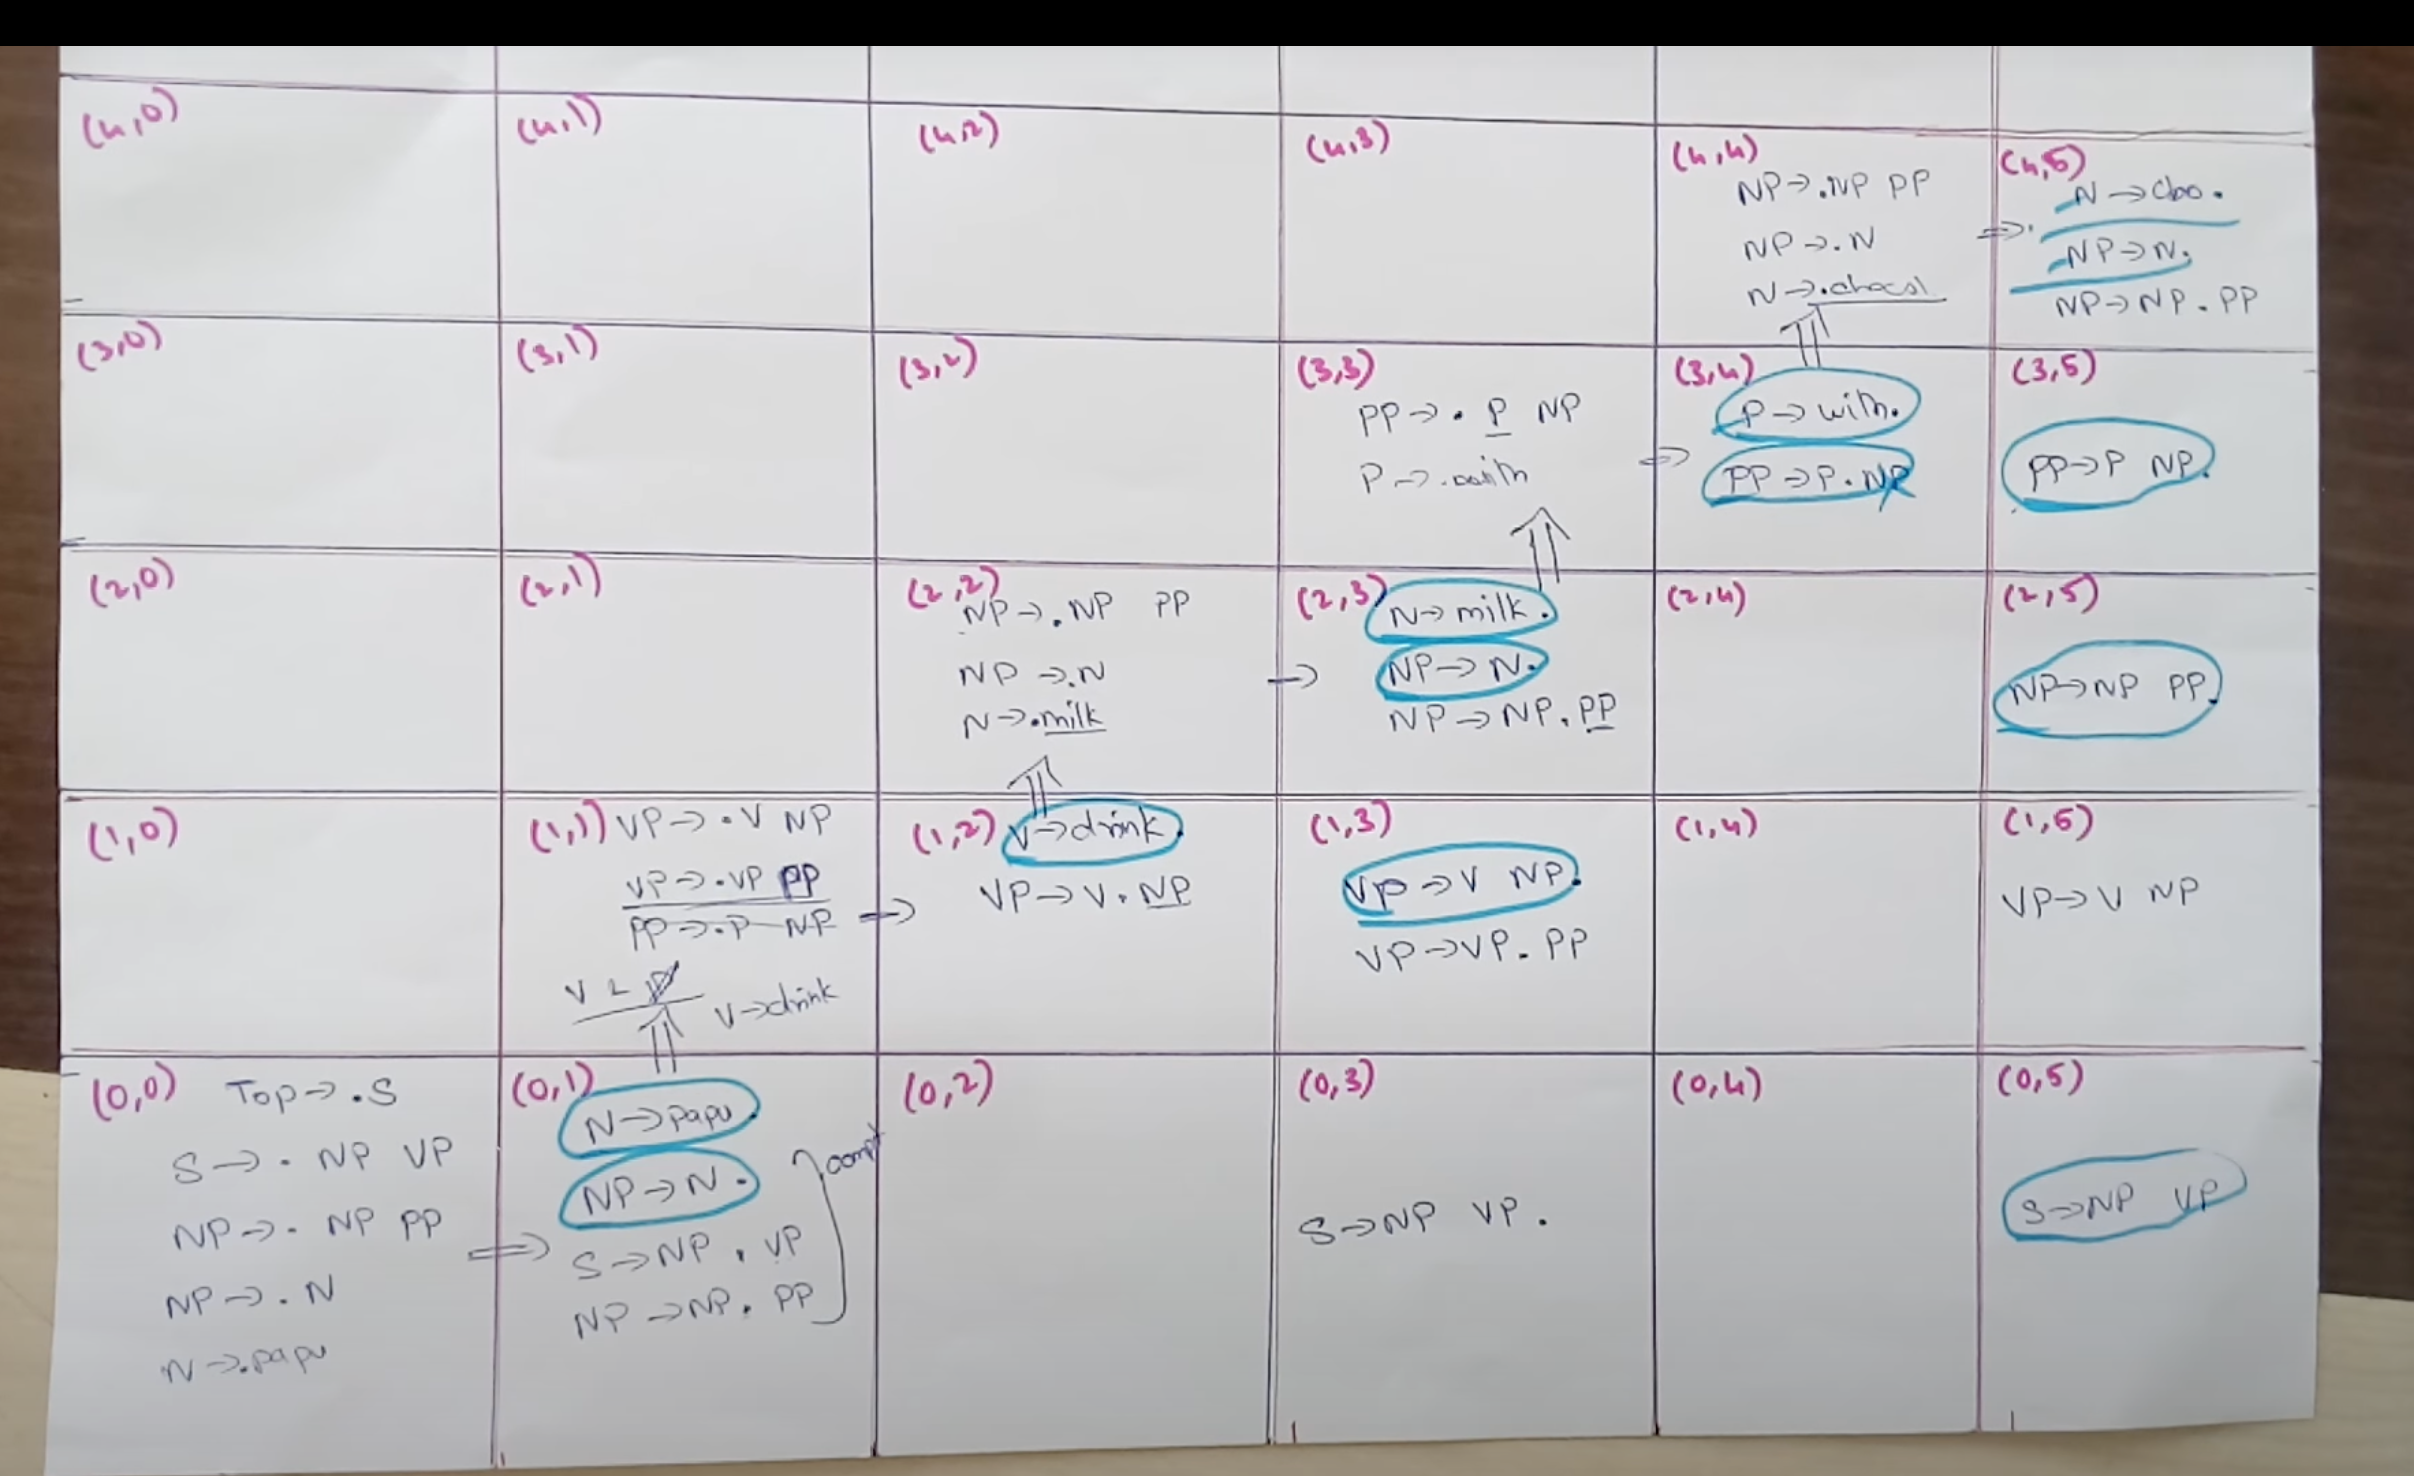 (4,0)
(4,1)
(4,2)
(4,3)
(4,4)
NP→.NP PP
NP→.N
N→.chocol
(4,5)
⇒
N→cho.
NP→N.
NP→NP.PP
(3,0)
(3,1)
(3,2)
(3,3)
PP→. P NP
P→.with
(3,4)
⇒
P→with.
PP→P.NP
(3,5)
PP→P NP.
(2,0)
(2,1)
(2,2)
NP→.NP PP
NP→.N
N→.milk
(2,3)
⇒
N→milk.
NP→N.
NP→NP.PP
(2,4)
(2,5)
NP→NP PP.
(1,0)
(1,1) VP→.V NP
VP→.VP PP
PP→.P NP
V→drink
(1,2) V→drink.
⇒
VP→V.NP
(1,3)
VP→V NP.
VP→VP.PP
(1,4)
(1,5)
VP→V NP
(0,0) Top→.S
S→. NP VP
NP→. NP PP
NP→.N
N→.papu
(0,1)
⇒
N→papu.
NP→N.
S→NP.VP
NP→NP.PP
comp
(0,2)
(0,3)
S→NP VP.
(0,4)
(0,5)
S→NP VP